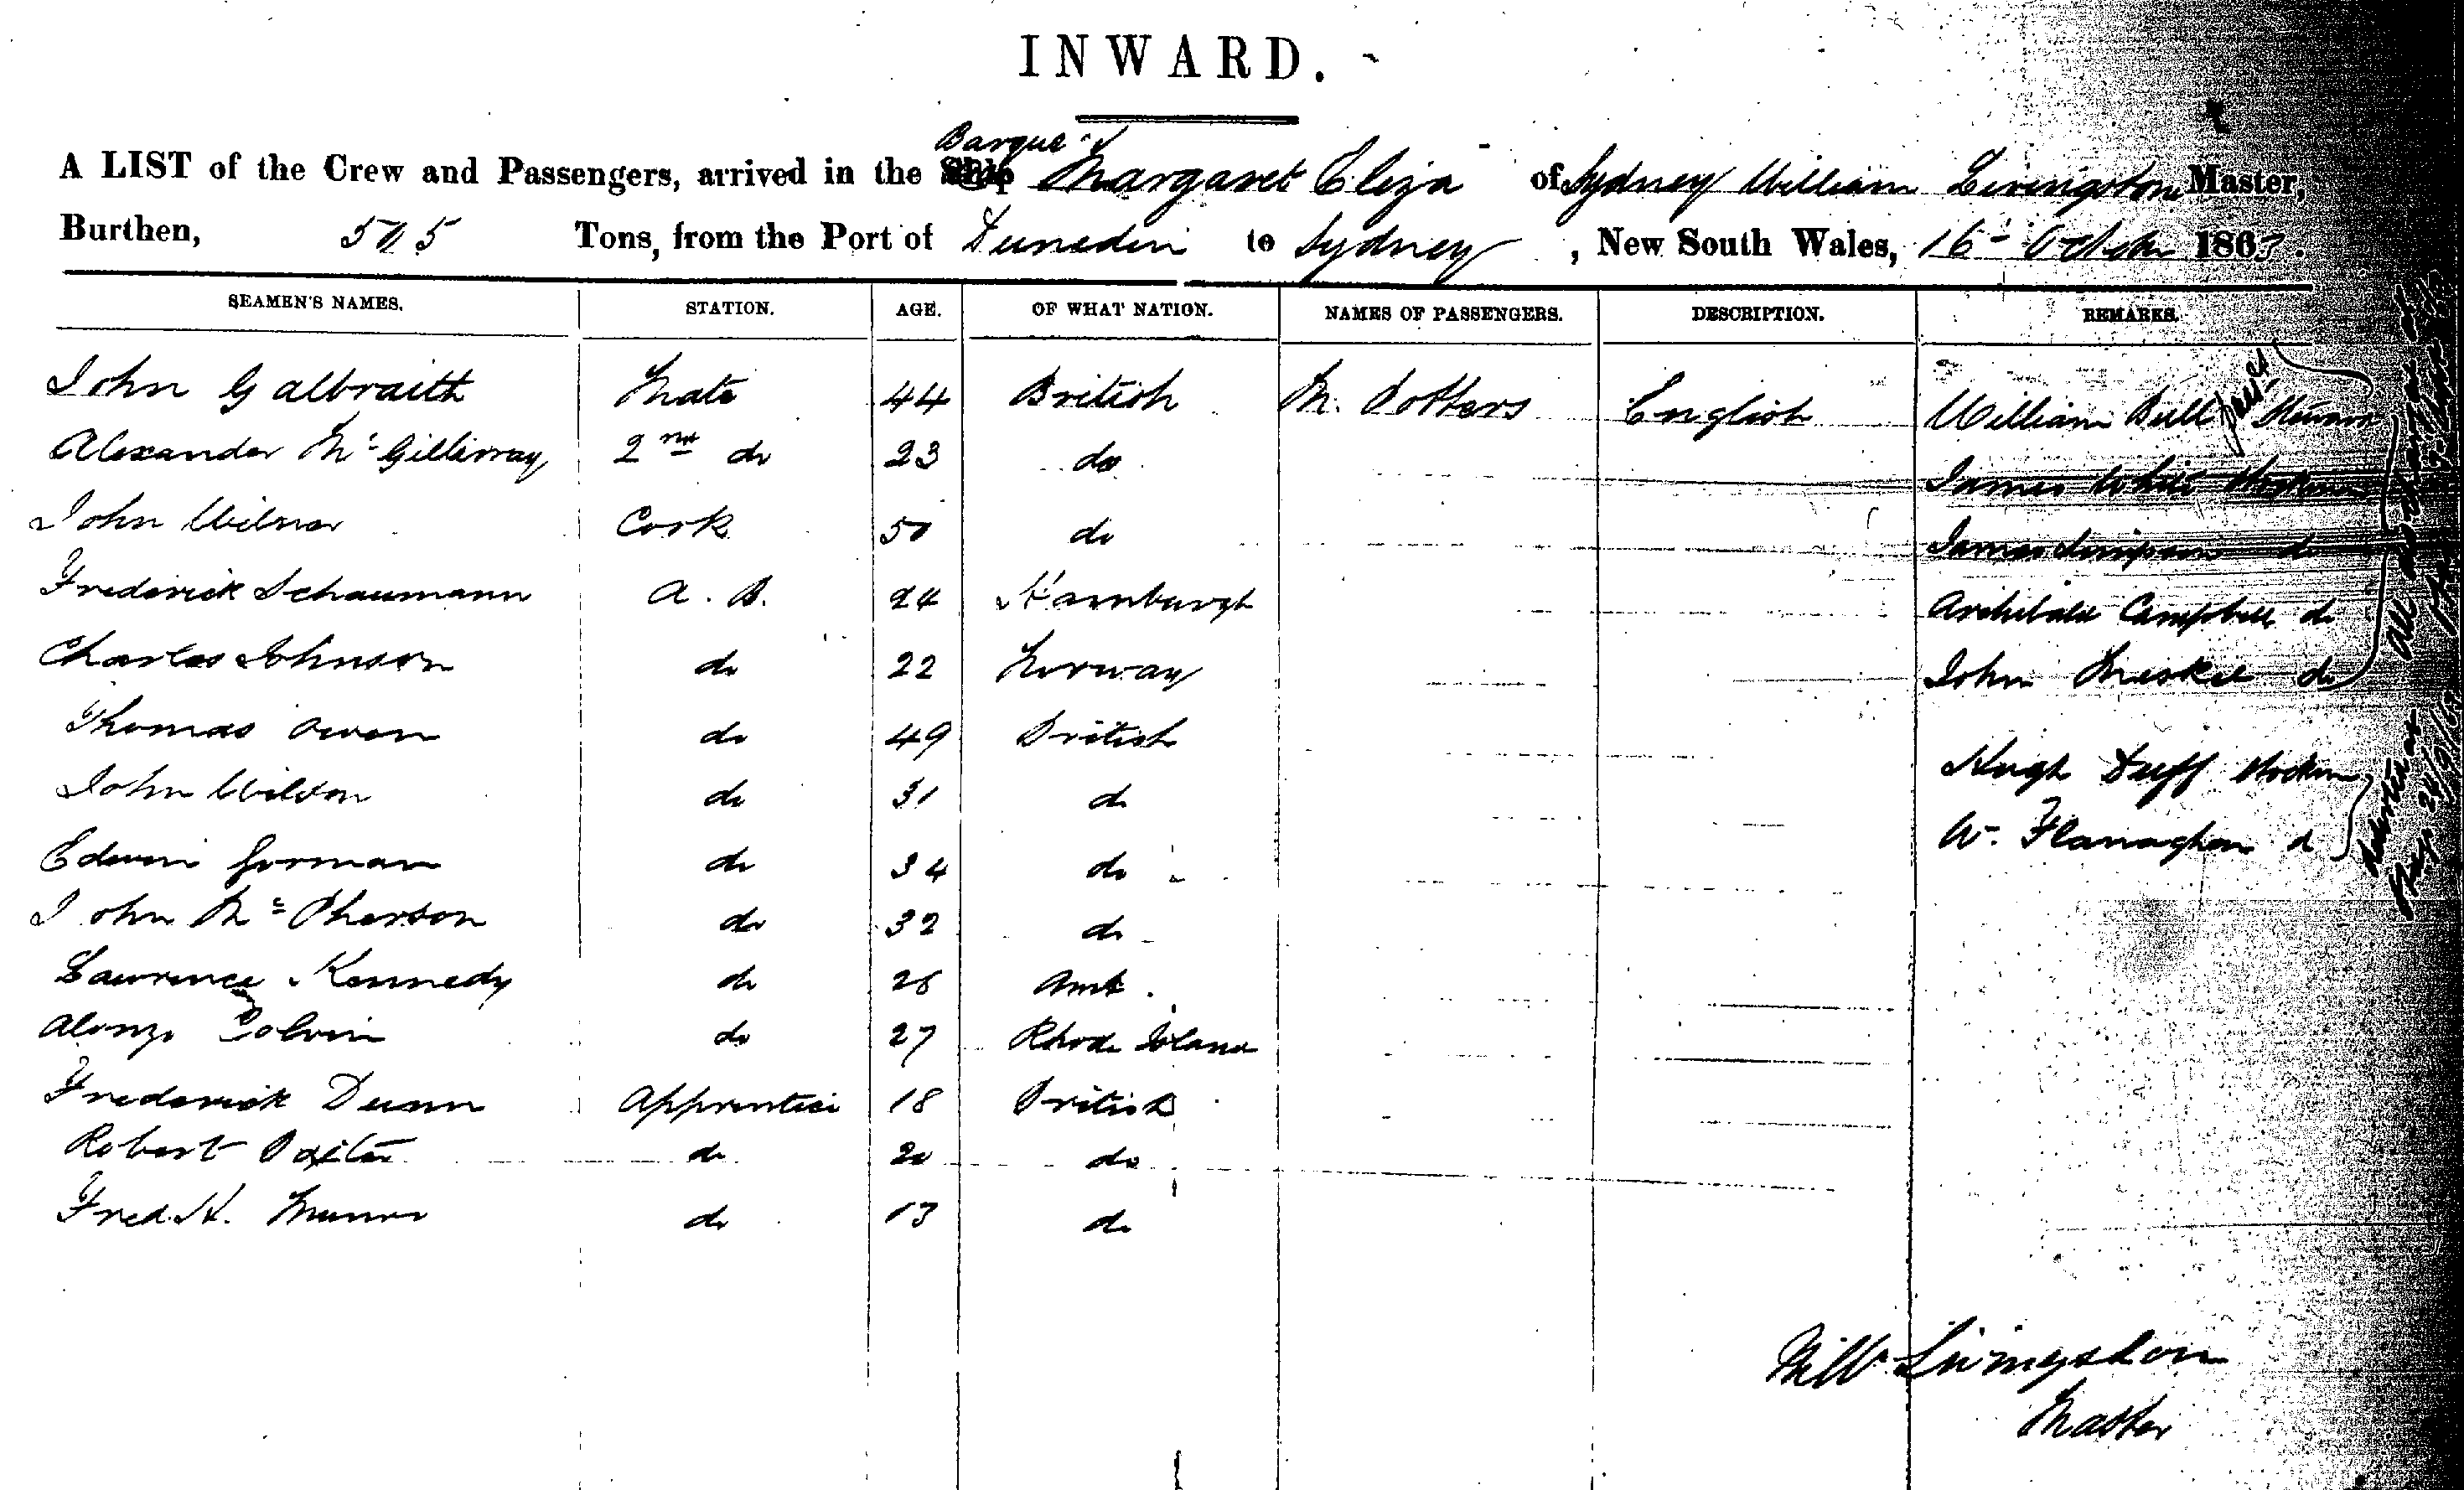 INWARD.
Barque
A LIST of the Crew and Passengers, arrived in the Ship Margaret Eliza of Sydney William Livingston Master,
Burthen, 505 Tons, from the Port of Dunedin to Sydney, New South Wales, 16th October 1863.
SEAMEN'S NAMES. STATION. AGE. OF WHAT NATION. NAMES OF PASSENGERS. DESCRIPTION. REMARKS.
John Galbraith Mate 44 British M. Potters English William Bull
Alexander McGillivray 2nd do 23 do James White
John Milner Cook 50 do James Simpson do
Frederick Schaumann A. B. 24 Hamburgh Archibald Campbell do
Charles Johnson do 22 Norway John do
Thomas Owen do 49 British
Hugh Duff
John Wilson do 31 do
W. Flanaghan d
Edwin Gorman do 34 do
John McPherson do 32 do
Lawrence Kennedy do 26
Alonzo Colvin do 27 Rhode Island
Frederick Dunn Apprentice 18 British
Robert do 20 do
Fred. H. Munro do 13 do
Livingston
Master